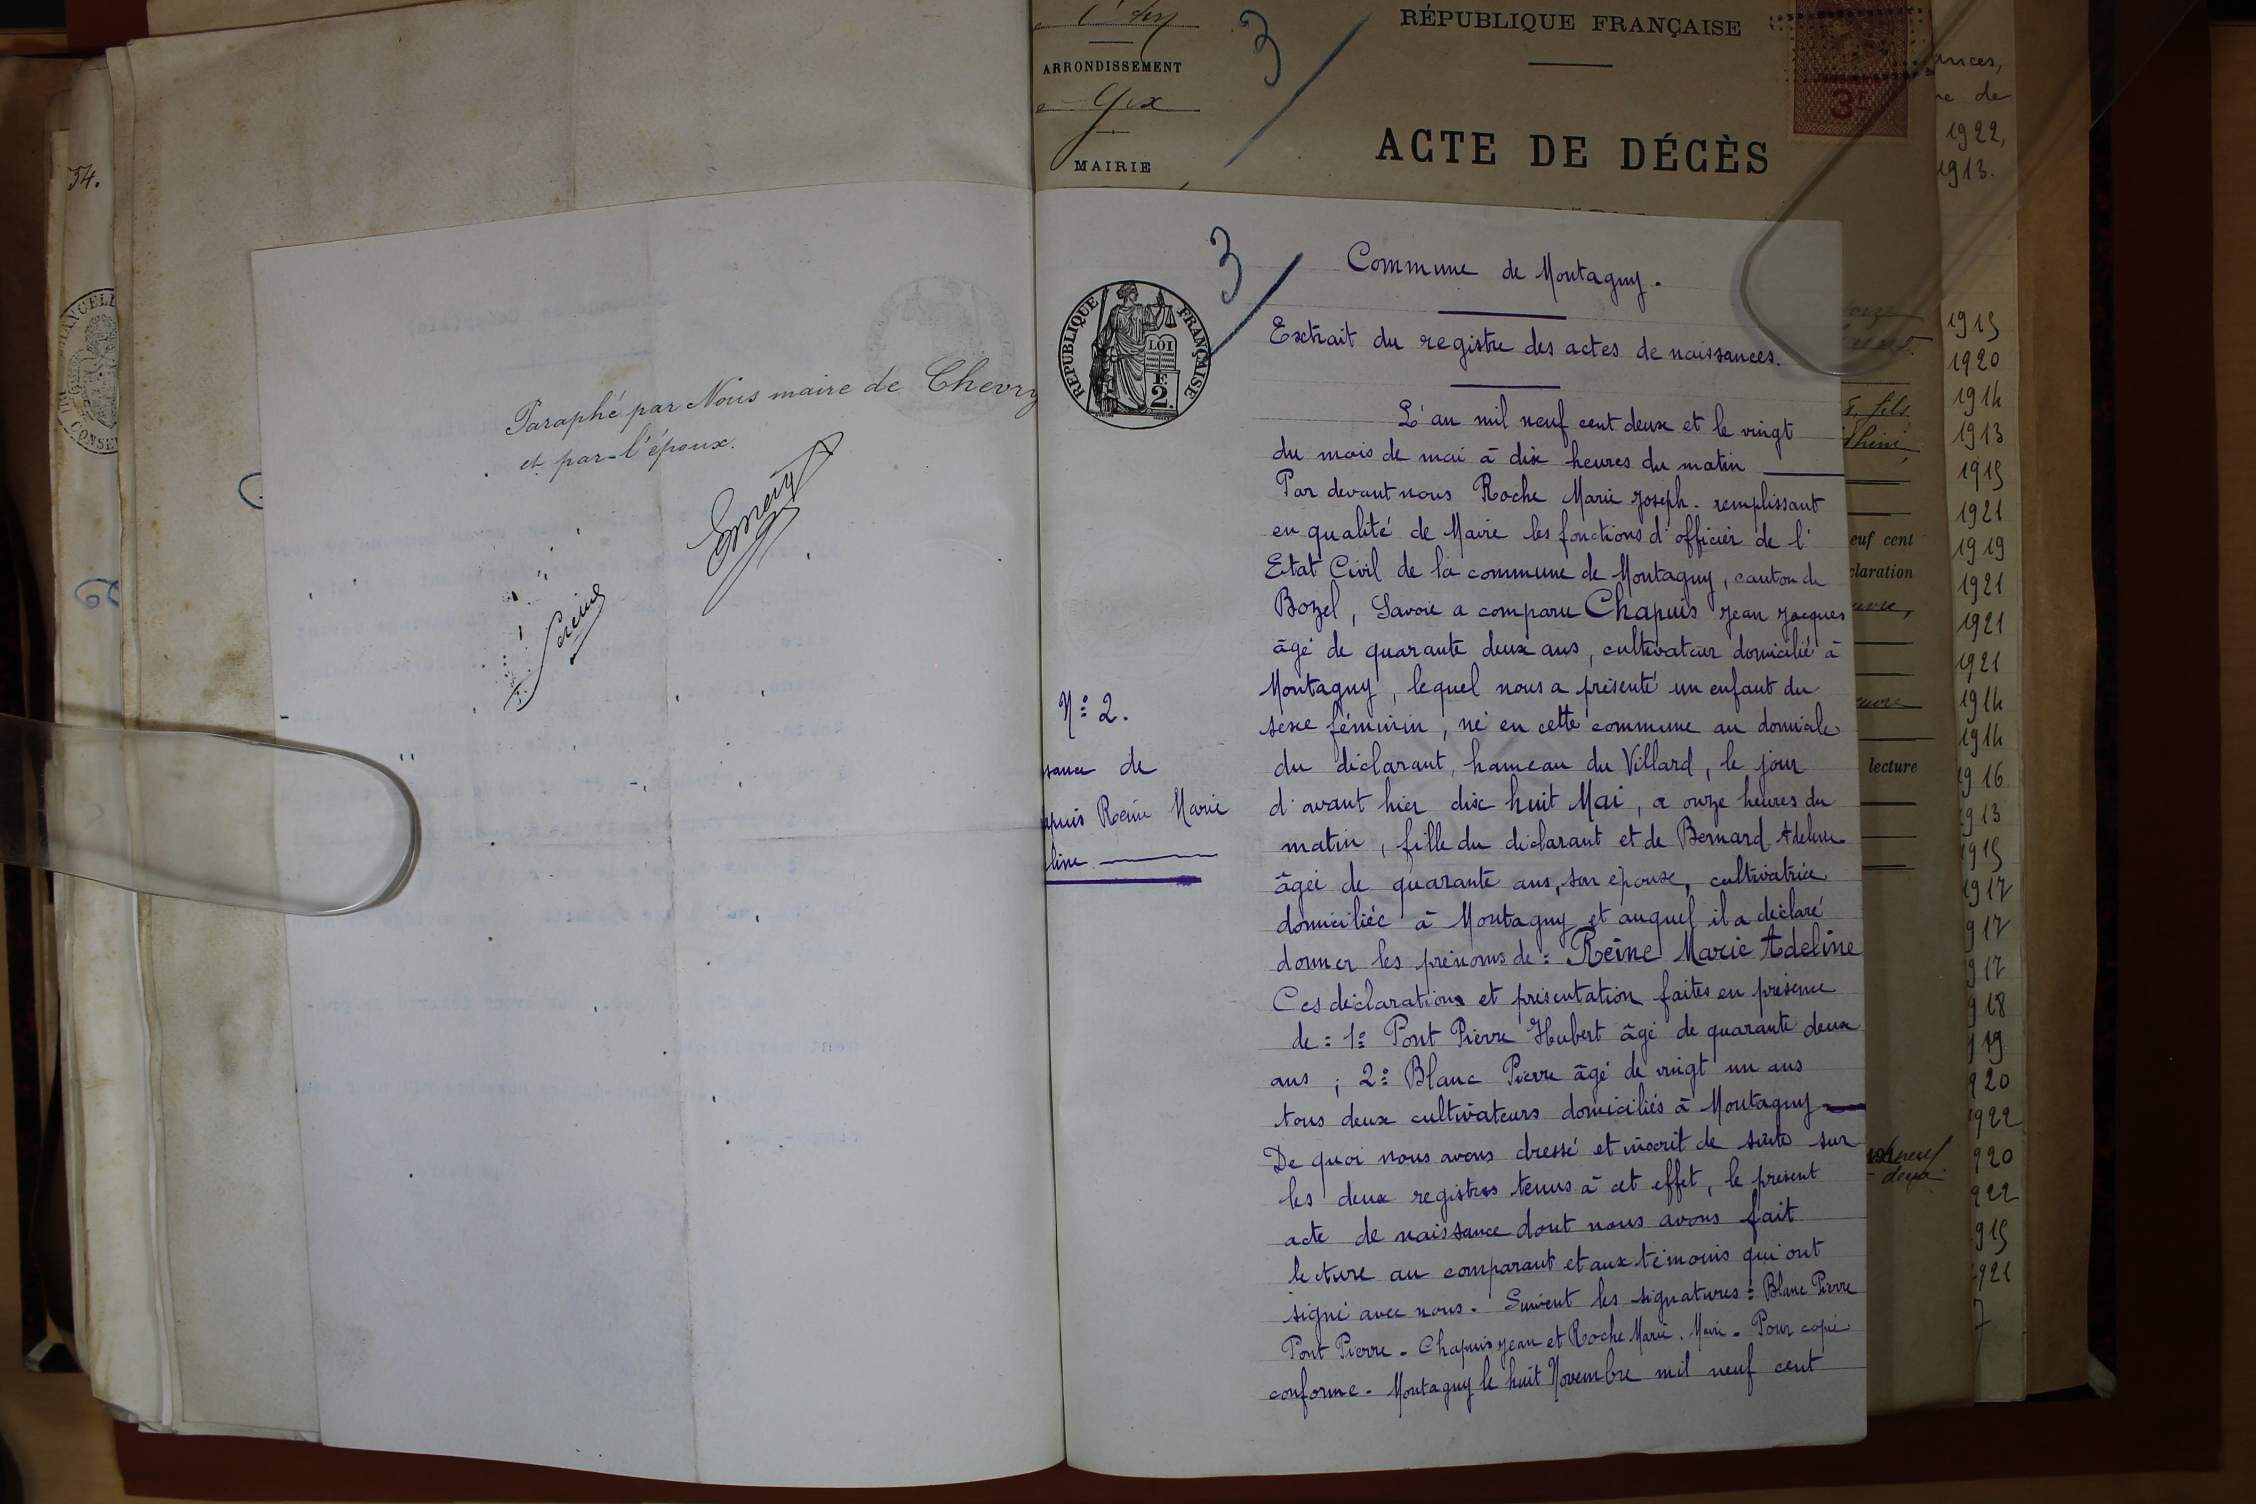 34.
Paraphé par Nous maire de Chevry
et par l'époux.
Emery
ARRONDISSEMENT
Gex
MAIRIE
3
RÉPUBLIQUE FRANÇAISE
3F
ACTE DE DÉCÈS
3
RÉPUBLIQUE FRANÇAISE
LOI
E
2.
Commune de Montagny.
Extrait du registre des actes de naissances.
L'an mil neuf cent deux et le vingt
du mois de mai à dix heures du matin
Par devant nous Roche Marie Joseph. remplissant
en qualité de Maire les fonctions d'officier de l'
Etat Civil de la commune de Montagny, canton de
Bozel, Savoie a comparu Chapuis Jean Jacques
âgé de quarante deux ans, cultivateur domicilié à
Montagny, lequel nous a présenté un enfant du
sexe féminin, né en cette commune au domicile
du déclarant, hameau du Villard, le jour
d'avant hier dix huit Mai, a onze heures du
matin, fille du déclarant et de Bernard Adeline
âgée de quarante ans, son épouse, cultivatrice
domiciliée à Montagny et auquel il a déclaré
donner les prénoms de : Reine Marie Adeline
Ces déclarations et présentation faites en présence
de : 1º Pont Pierre Hubert âgé de quarante deux
ans ; 2º Blanc Pierre âgé de vingt un ans
tous deux cultivateurs domiciliés à Montagny
De quoi nous avons dressé et inscrit de suite sur
les deux registres tenus à cet effet, le présent
acte de naissance dont nous avons fait
lecture au comparant et aux témoins qui ont
signé avec nous. Suivent les signatures : Blanc Pierre
Pont Pierre - Chapuis Jean et Roche Marie. Maire - Pour copie
conforme - Montagny le huit Novembre mil neuf cent
Nº 2.
ssance de
apuis Reine Marie
eline
ances,
re de
1922,
1913.
1915
1920
1914
1913
1915
1921
1919
1921
1921
1921
1914
1914
1916
1913
1915
1917
917
917
918
919
920
1922
920
922
915
1921
7
fils
euf cent
claration
lecture
neuf
deux